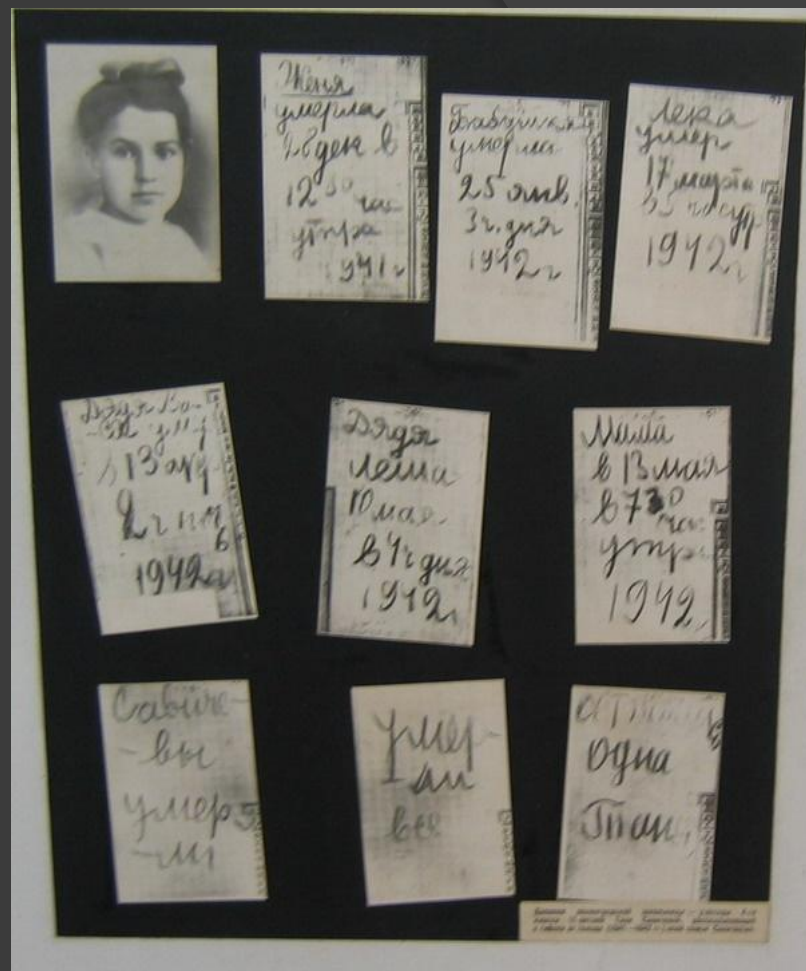 Женя
умерла
28 дек в
12 30 час
утра
1941 г
Бабушка
умерла
25 янв.
3 ч. дня
1942 г
Лека
умер
17 марта
в 5 час ут
1942 г
Дядя Ва-
-ся ум
в 13 апр
2 ч ноч
1942 г
Дядя
Леша
10 мая
в 4 ч дня
1942 г
Мама
в 13 мая
в 7 30
час
утра
1942
Савиче-
-вы
умер
-ли
умер-
-ли
все
одна
Таня